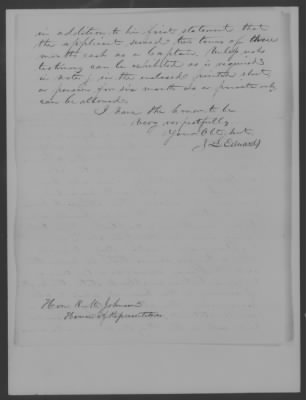 in addition to his first statement that
the applicant served two tours of three
months each as a Captain. Unless such
testimony can be exhibited as is required
in note 5 in the enclosed printed sheet
a pension for six months as a private only
can be allowed.
I have the honor to be
Very respectfully
Your Obt. Svt.
J L Edwards
Hon R. M. Johnson
House of Representatives